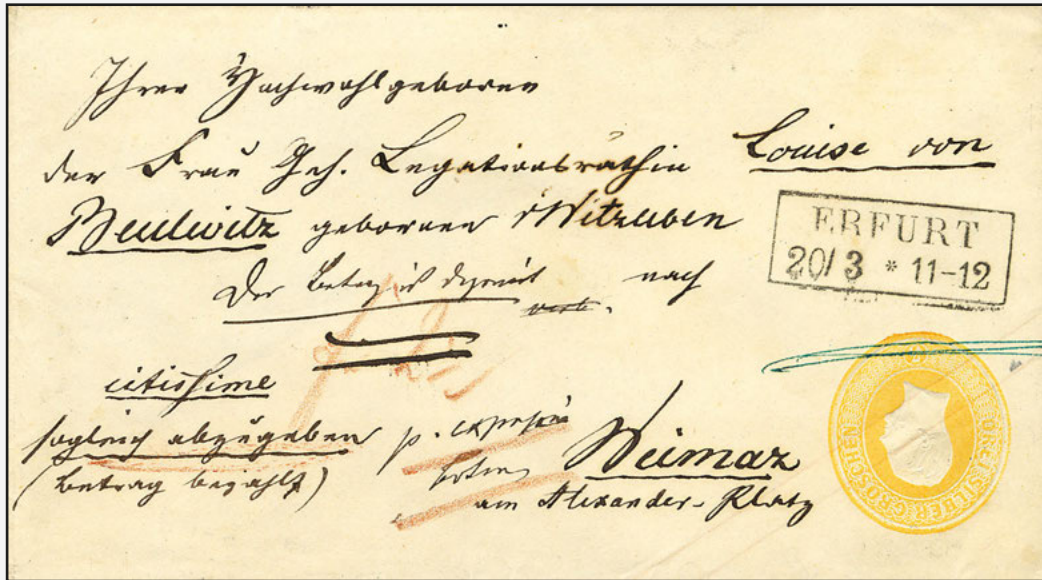 Ihrer Hochwohlgeboren
der Frau Geh. Legationsräthin Louise von
Beulwitz geborenen v Witzleben
ERFURT
20/3 * 11-12
Der Betrag ist deponirt nach
citissime
sogleich abzugeben p. expressen
(Betrag bezahlt) Boten Weimar
am Alexander-Platz
DREI SILBERGROSCHEN